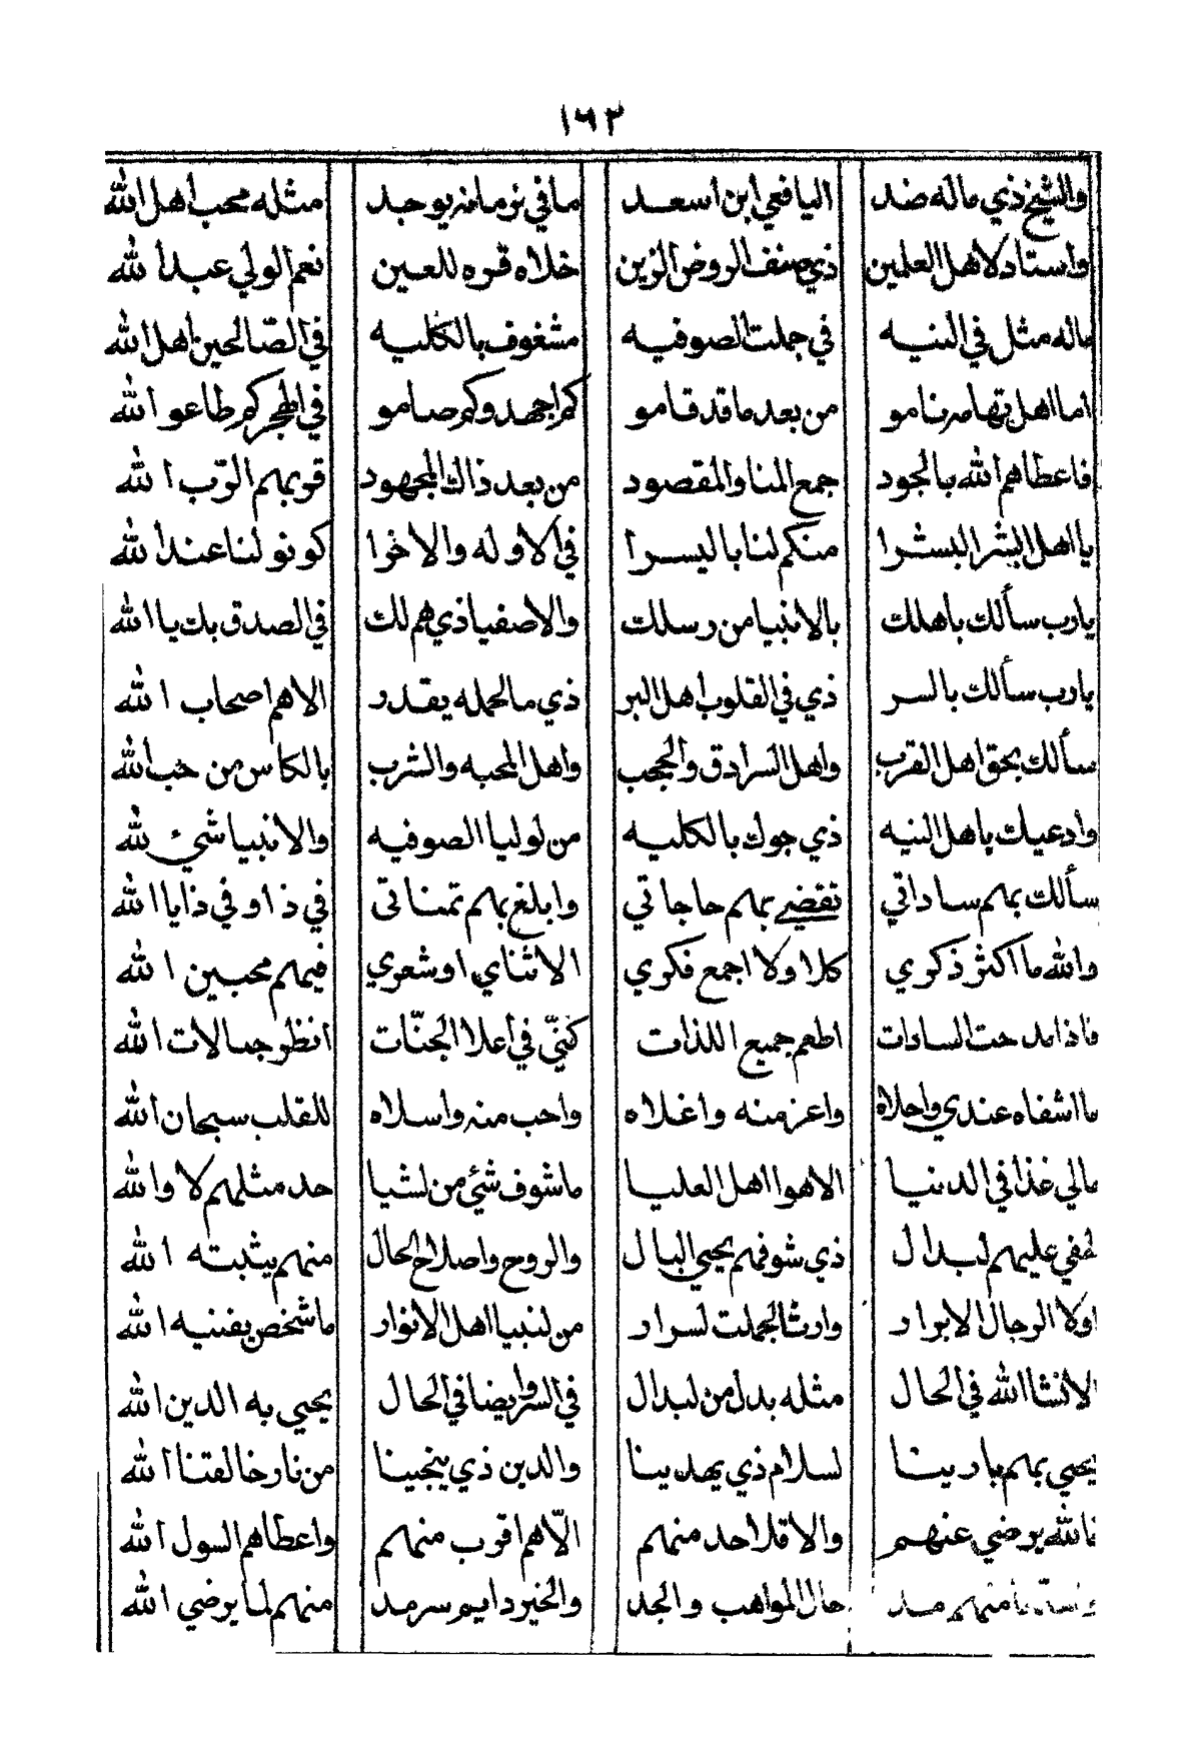 ١٦٢
والشيخ ذي ماله ضد اليافعي ابن اسعد مافي زمانه يوجد مثله محب اهل الله
واستاد لاهل العلمين ذي صنف الروض الزين خلاه قره للعين نعم الولي عبد الله
ماله مثل في النيه في جملت الصوفيه مشغوف بالكليه في الصّالحين اهل الله
اما اهل تهامه نامو من بعد ما قد قامو كم اجهد وكم صامو في الهجر كم طاعو الله
فاعطاهم الله بالجود جمع المنا والمقصود من بعد ذاك المجهود قوبهم الرّب الله
يا اهل البشر البشرا منكم لنا باليسرا في الاوله والاخرا كونو لنا عند الله
يارب سألك باهلك بالانبيا من رسلك والاصفيا ذي هم لك في الصدق بك يا الله
يارب سألك بالسر ذي في القلوب اهل البر ذي ما لحمله يقدر الاهم اصحاب الله
سألك بحق اهل القرب واهل السرادق والحجب واهل المحبه والشرب بالكاس من حب الله
وادعيك باهل النيه ذي جوك بالكليه من لوليا الصوفيه والانبيا شيء لله
سألك بهم ساداتي تقضي بهم حاجاتي وابلغ بهم تمناتى في ذا وفي ذايا الله
والله ما اكثر ذكري كلا ولا اجمع فكري الا ثناي او شعري فيهم محبين الله
فاذا مدحت السادات اطعم جميع اللذات كنّي في أعلا الجنّات انظر جمالات الله
ما اشفاه عندي واحلاه واعز منه واغلاه واحب منه واسلاه للقلب سبحان الله
مالي غذا في الدنيا الا هوا اهل العليا ما شوف شئ من لشيا حد مثلهم لا والله
لهفي عليهم لبدال ذي شوفهم يحيي البال والروح واصلاح الحال منهم يثبته الله
اولا الرجال الابرار وارثا لجملت لسرار من لنبيا اهل الانوار ما شخص يفنيه الله
لانشا الله في الحال مثله بدل من لبدال في السر وايضا في الحال يحيي به الدين الله
يحيي بهم بارينا لسلام ذي يهدينا والدين ذي ينجينا من نار خالقنا الله
فالله يرضي عنهم والا قد احد منهم الّاهم اقرب منهم واعطاهم السول الله
منهم مدد حال المواهب والجد والخير دايم سرمد منهم لما يرضي الله